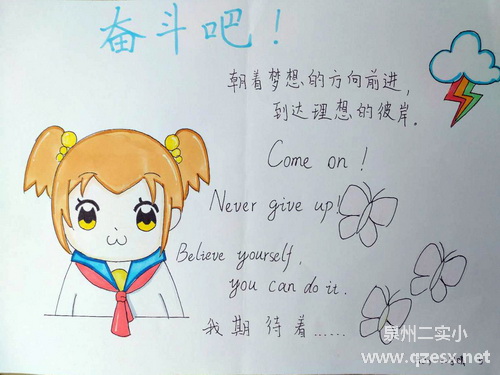 奋斗吧！
朝着梦想的方向前进，
到达理想的彼岸．
Come on !
Never give up!
Believe yourself,
you can do it.
我期待着……
泉州二实小
www.qzesx.net